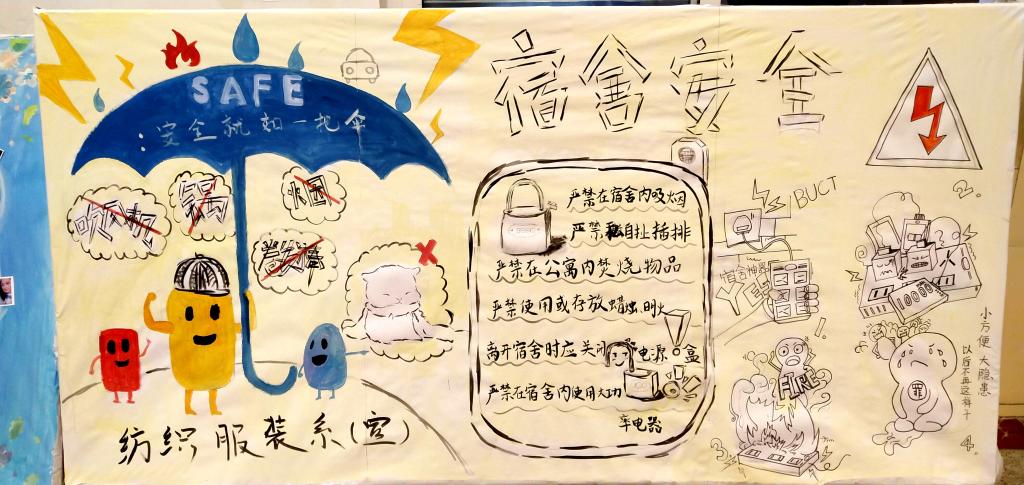 SAFE
:安全就如一把伞
吹风机
火锅
纺织服装系(宣)
宿舍安全
严禁在宿舍内吸烟
严禁私自扯插排
严禁在公寓内焚烧物品
严禁使用或存放蜡烛、明火
离开宿舍时应关闭电源盒
严禁在宿舍内使用大功
率电器
BUCT
宿舍神器
YES
!
2.
火
FIRE
3.
罪
小方便 大隐患
以后不再这样干
4.